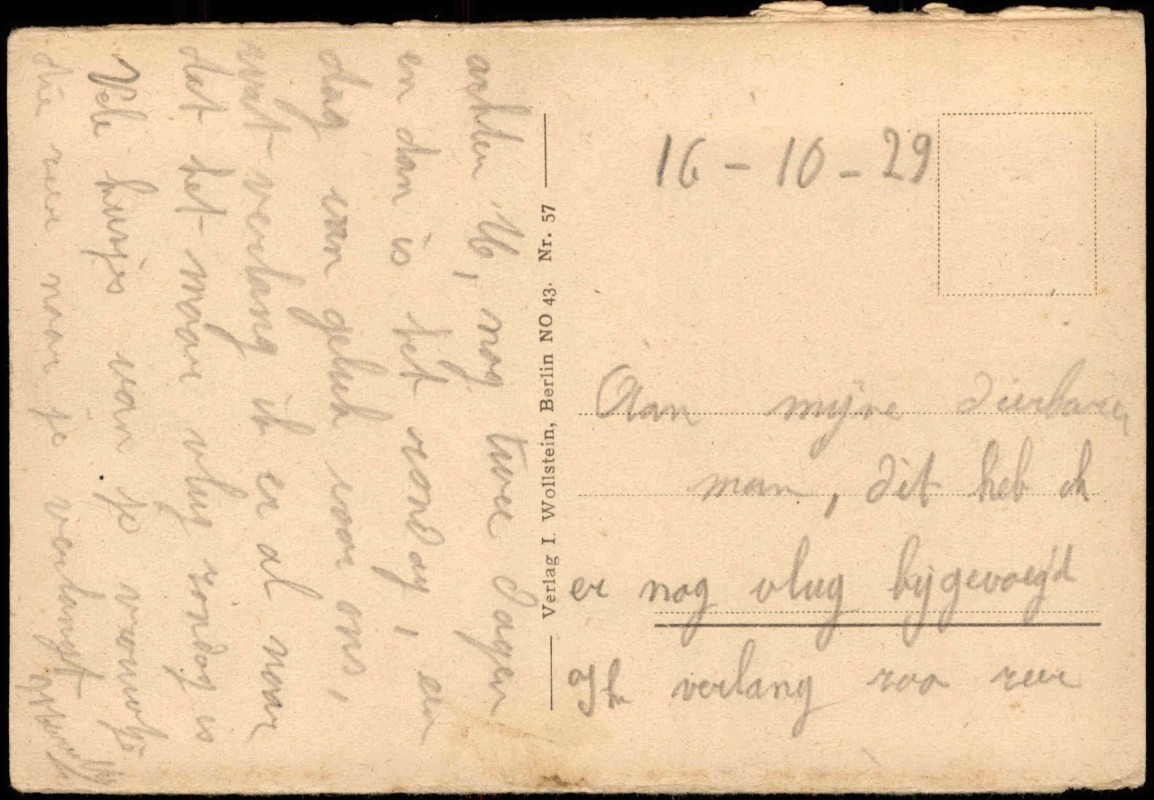 16 - 10 - 29
Aan mijne dierbaren
man, dit heb ik
er nog vlug bijgevoegd
Ik verlang zoo zeer
achter U, nog twee dagen
en dan is het zondag, een
dag van geluk voor ons,
wat verlang ik er al naar
dat het maar vlug zondag is
Vele kusjes van je vrouwtje
die zeer naar je verlangt
Verlag I. Wollstein, Berlin NO 43. Nr. 57